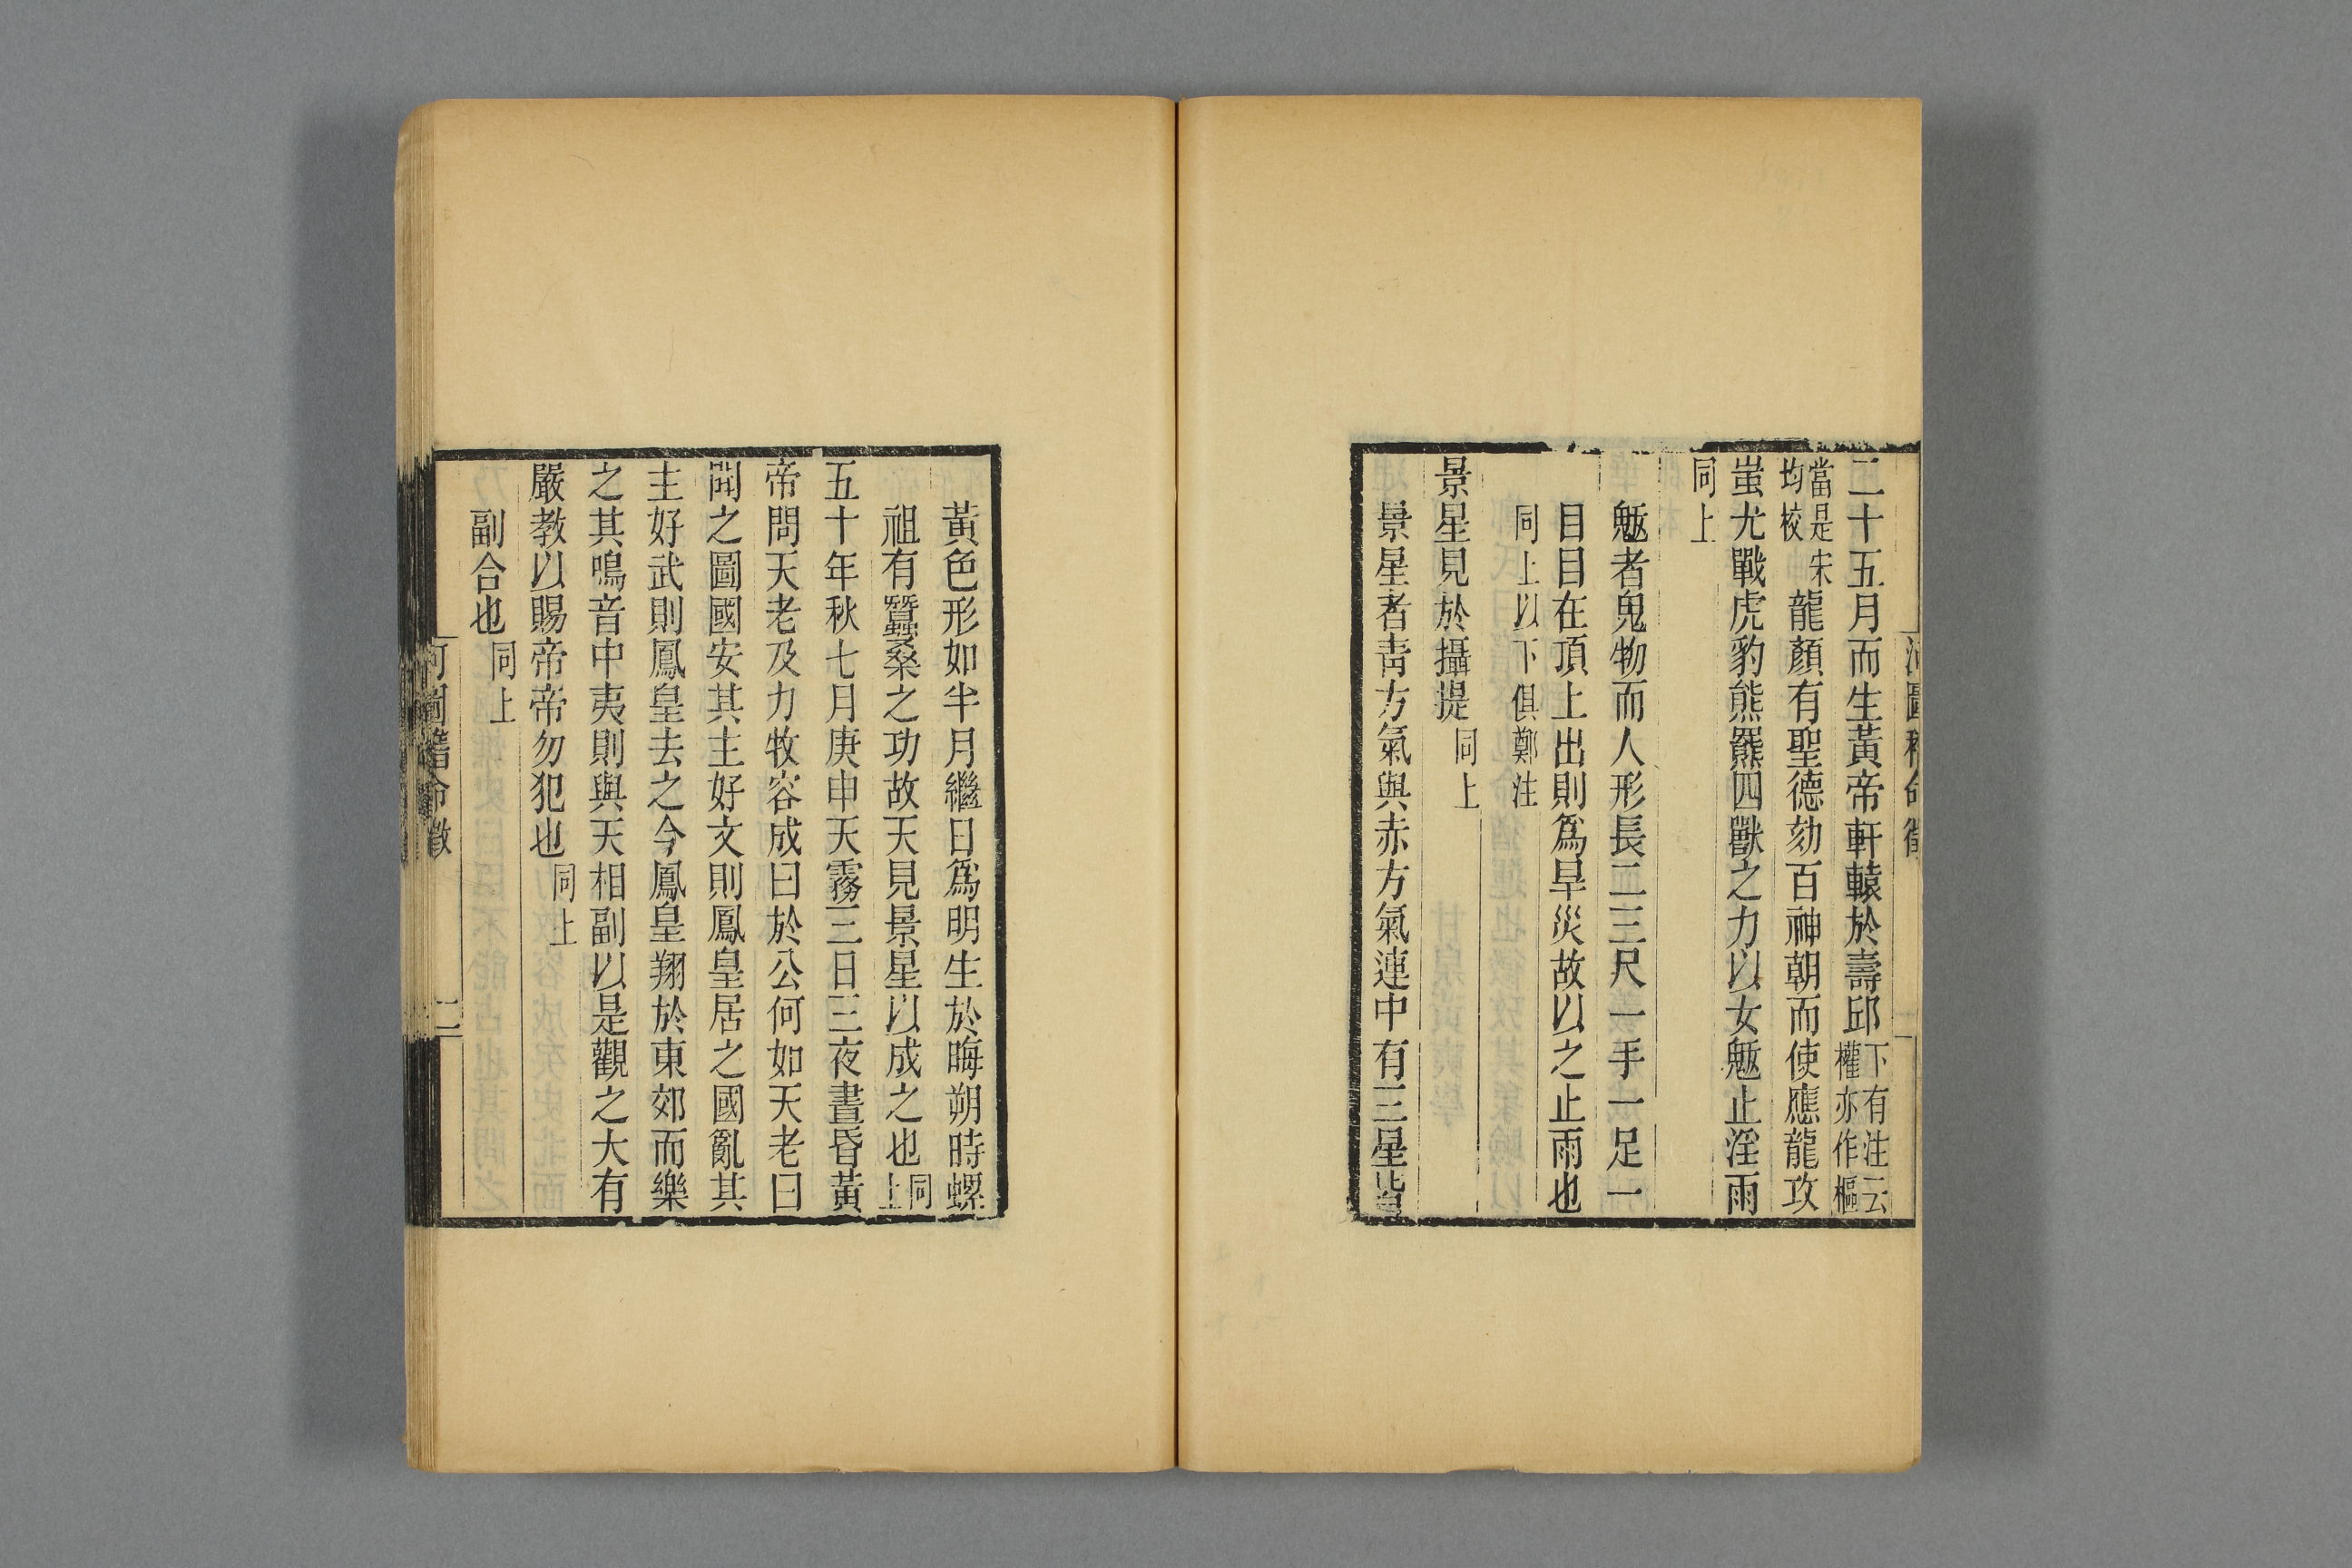 二十五月而生黃帝軒轅於壽邱下有注云權亦作樞
當是宋均校龍顏有聖德劾百神朝而使應龍攻
蚩尤戰虎豹熊羆四獸之力以女魃止淫雨
同上
魃者鬼物而人形長二三尺一手一足一
目目在頂上出則爲旱災故以之止雨也
同上以下俱鄭注
景星見於攝提同上
景星者靑方氣與赤方氣連中有三星皆
黃色形如半月繼日爲明生於晦朔時螺
祖有蠶桑之功故天見景星以成之也同上
五十年秋七月庚申天霧三日三夜晝昏黃
帝問天老及力牧容成曰於公何如天老曰
聞之圖國安其主好文則鳳皇居之國亂其
主好武則鳳皇去之今鳳皇翔於東郊而樂
之其鳴音中夷則與天相副以是觀之大有
嚴教以賜帝帝勿犯也同上
副合也同上